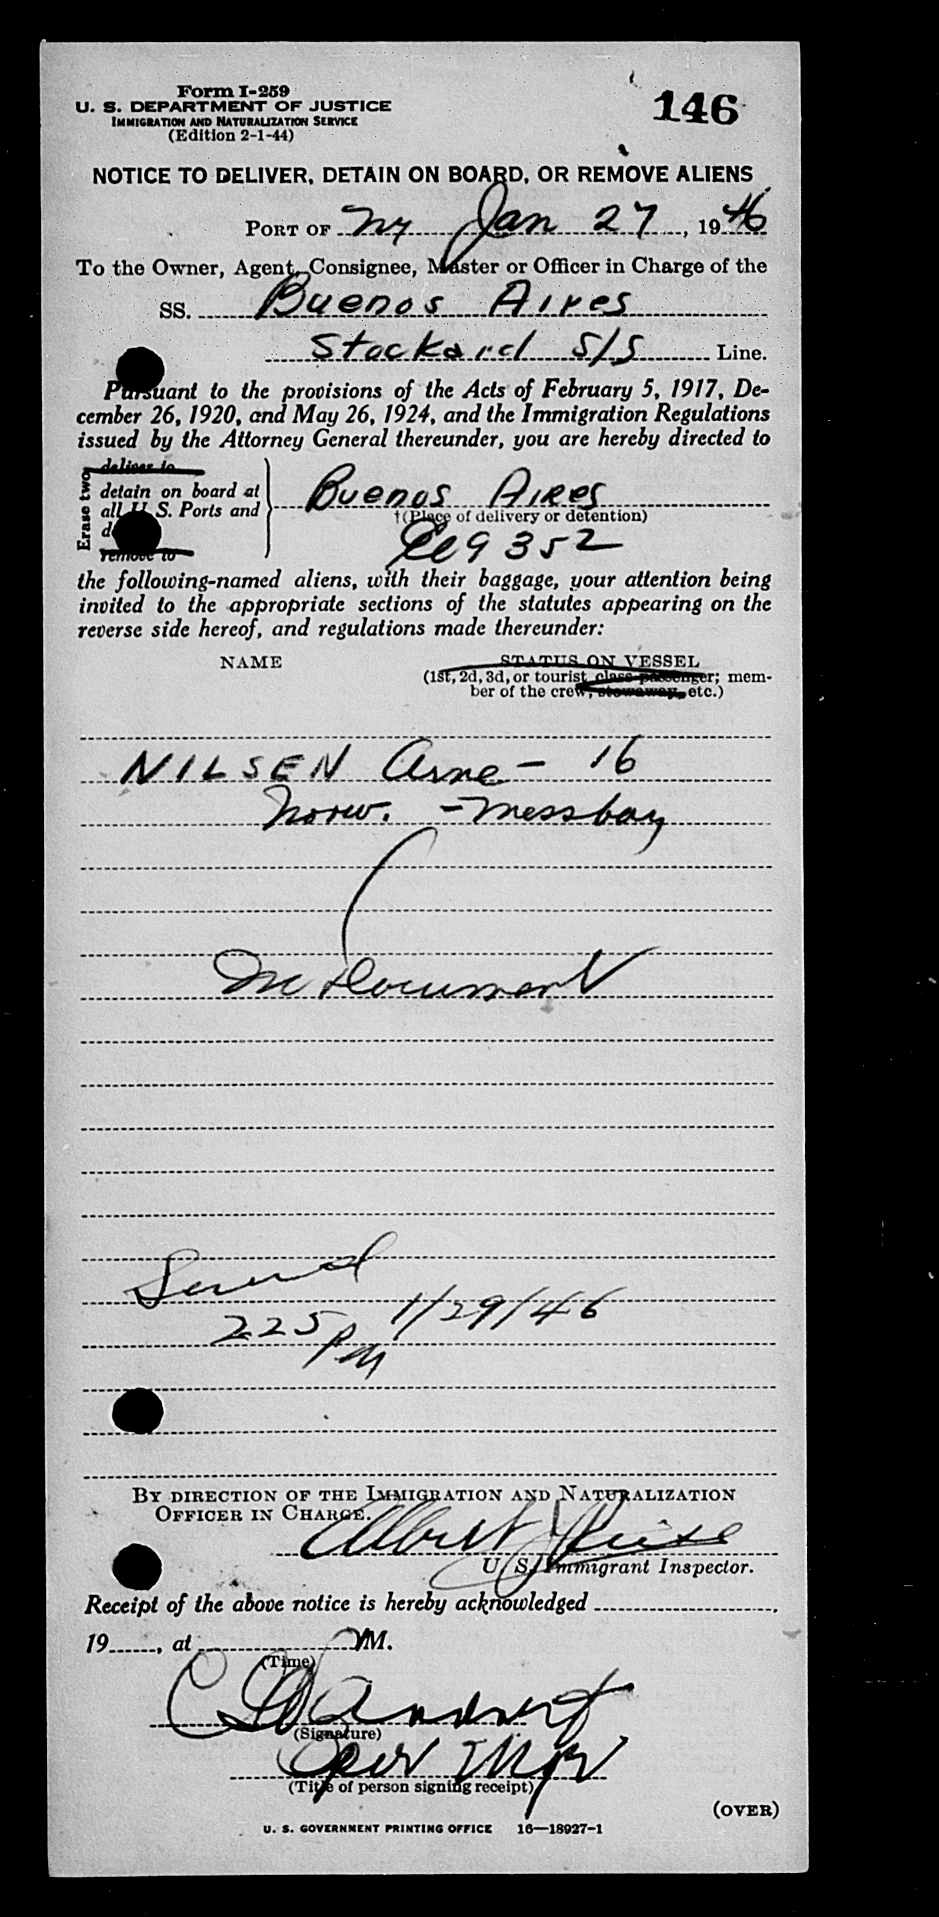 Form I-259
U. S. DEPARTMENT OF JUSTICE
IMMIGRATION AND NATURALIZATION SERVICE
(Edition 2-1-44)
146
NOTICE TO DELIVER, DETAIN ON BOARD, OR REMOVE ALIENS
PORT OF NY Jan 27, 1946
To the Owner, Agent, Consignee, Master or Officer in Charge of the
SS. Buenos Aires
Stockard S/S Line.
Pursuant to the provisions of the Acts of February 5, 1917, De-
cember 26, 1920, and May 26, 1924, and the Immigration Regulations
issued by the Attorney General thereunder, you are hereby directed to
Erase two
deliver to
detain on board at
all U. S. Ports and
remove to
Buenos Aires
†(Place of delivery or detention)
9352
the following-named aliens, with their baggage, your attention being
invited to the appropriate sections of the statutes appearing on the
reverse side hereof, and regulations made thereunder:
NAME
STATUS ON VESSEL
(1st, 2d, 3d, or tourist class passenger; mem-
ber of the crew, stowaway, etc.)
NILSEN Arne - 16
Norw. - Messboy
No Document
Served
225 PM 1/29/46
BY DIRECTION OF THE IMMIGRATION AND NATURALIZATION
OFFICER IN CHARGE.
Albert J
U. S. Immigrant Inspector.
Receipt of the above notice is hereby acknowledged
19, at M.
(Time)
(Signature)
Oper Mgr
(Title of person signing receipt)
(OVER)
U. S. GOVERNMENT PRINTING OFFICE 16—18927-1